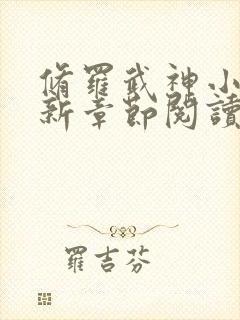 脩羅武神小
新章節閱讀
羅吉芬